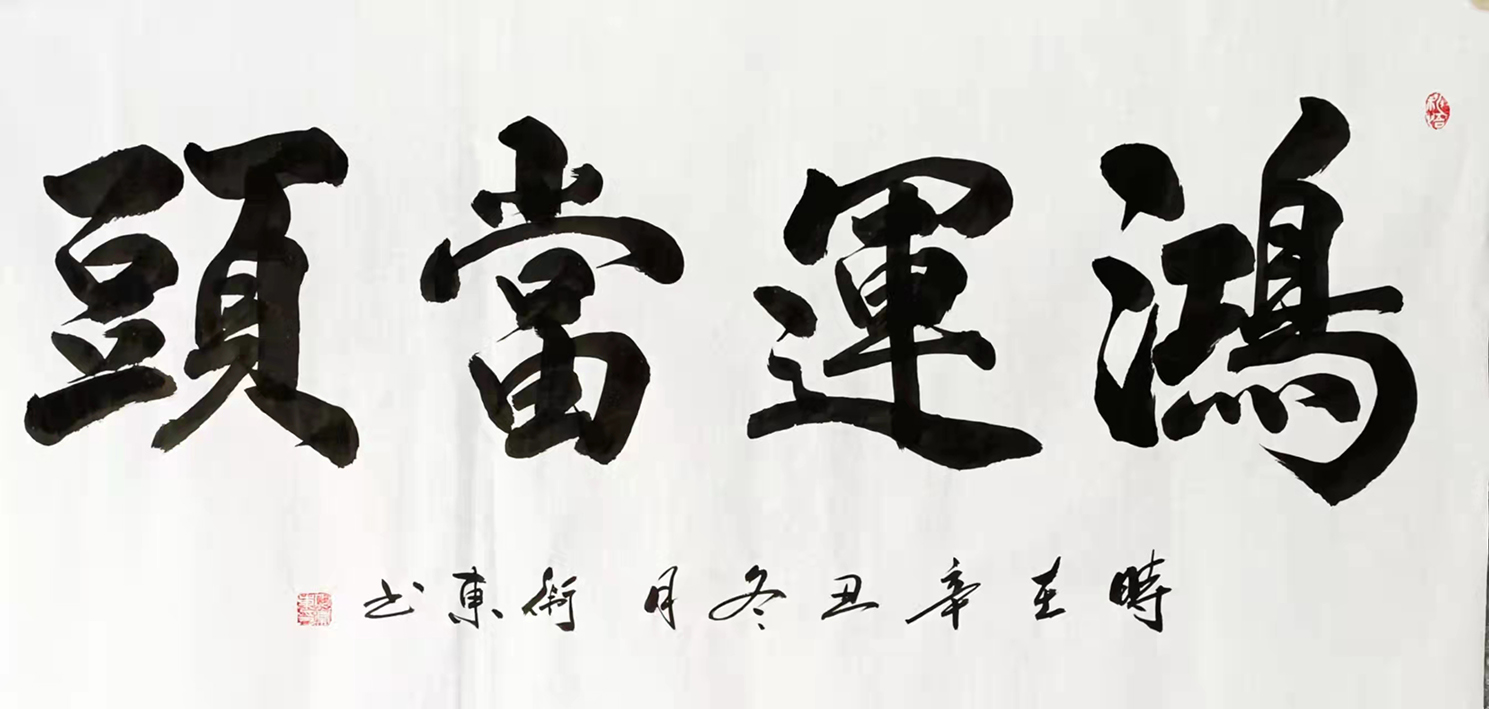 鴻運當頭
時在辛丑冬月衛東书